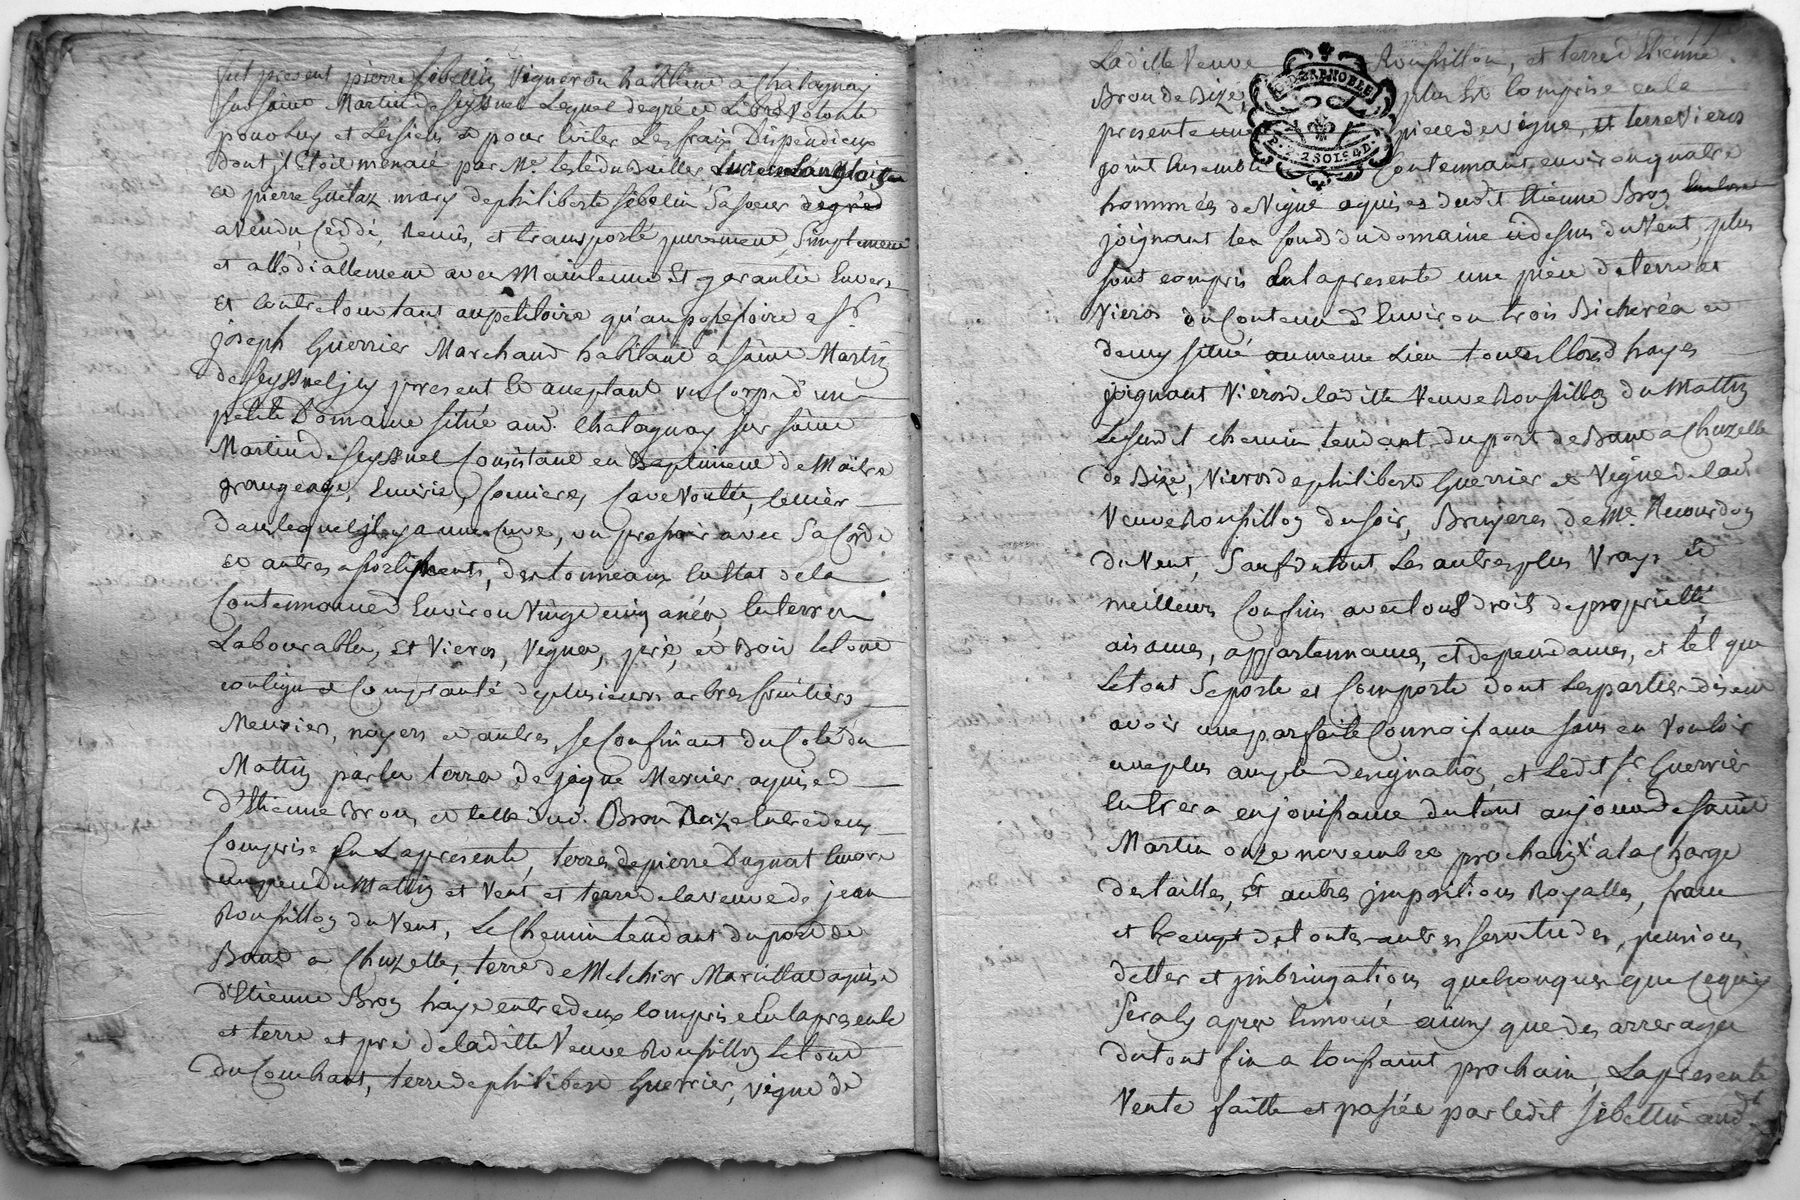 fut present pierre sibellin Vigneron habitant a Chatagnay
sur saint Martin de seyssuel Lequel de gré et Libre Volonté
pour luy et Les siens et pour Eviter Les fraix Dispendieux
dont jl Etoit menacé par Me.
et pierre Guetaz mary de philiberte sibelin Sa soeur degred
a Vendu, Ceddé, Remis, et transporté purement, Simplement
et allodiallement avec Maintenue Et garantie Envers
Et Contre tous tant au petitoire qu'au possessoire a Sr.
joseph Guerrier Marchand habitant a saint Martin
de seyssuel jcy present Et acceptant un Corps d'un
petit Domaine situé aud. Chatagnay sur saint
Martin de seyssuel Consistant en Baptiment de Maitre
grangeage, Ecurie, Cave Voutée, Cellier
dans lequel jl y a une Cuve, un pressoir avec Sa Corde
et autres assortiments, des tonneaux En Etat de la
Contennance d'Environ Vingt cinq anées, En terres
Labourables, Et Vieros, Vignes, pré, et Bois Le tout
contigu et Complanté de plusieurs arbres fruitiers
Meuriers, noyers et autres, se Confinant du Coté du
Mattin par les terres de jaque Mercier aquised
d'Etienne Bron, et celle dud. Bron Haze Entre deux
Comprise En La presente, terres de pierre Dugnat Encore
un peu du Mattin et Vent et terre de la veuve de jean
Roussillon du Vent, Le Chemin tendant du port de
Banc a Chuzelle, terre de Melchior Marcillac aquise
d'Etienne Bron haye entre deux Comprise En la presente
et terre et pré de la ditte Veuve Roussillon Le tout
du Couchant, terre de philibert Guerrier, vigne de
La ditte Veuve Roussillon, et terre d'Etienne
Bron de Bize, plus Est Comprise en la
presente une piece de vigne, et terre Vieros
joint Ensemble Contennant environ quatre
hommées de Vigne aquises dudit Etienne Bron
joignant les fonds du domaine cy dessus du Vent, plus
sont compris En la presente une piece de terre et
Vieros du Contenu d'Environ trois Bicherées et
demy situé au meme Lieu hayes
joignant Vieros de la ditte Veuve Roussillon du Mattin
Le susdit chemin tendant du port de Banc a Chuzelle
de Bize, Vieros de philibert Guerrier et Vigne de lad.
Veuve Roussillon du soir, Bruyeres de Me. Recourdon
du Vent, Sauf du tout Les autres plus Vrays et
meilleurs Confins avec tous droits de proprietté,
aisances, appartennances, et dependances, et tel que
Le tout Se porte et Comporte dont Les parties disent
avoir une parfaite Connoissance sans en Vouloir
une plus ample designation, et Ledit Sr. Guerrier
Entrera en jouissance du tout au jour de saint
Martin onze novembre prochain, a la Charge
des tailles, Et autres jmpositions Royalles, franc
et Exempt de toutes autres servitudes, pensions
dettes et jmbringations quelconques que Ce qui
Sera cy apres Enoncé ainsy que des arrerages
du tout fin a toussaint prochain, La presente
Vente faitte et passée par Ledit sibellin aud.
GEN. DE GRENOBLE
2 SOLS 4 D.